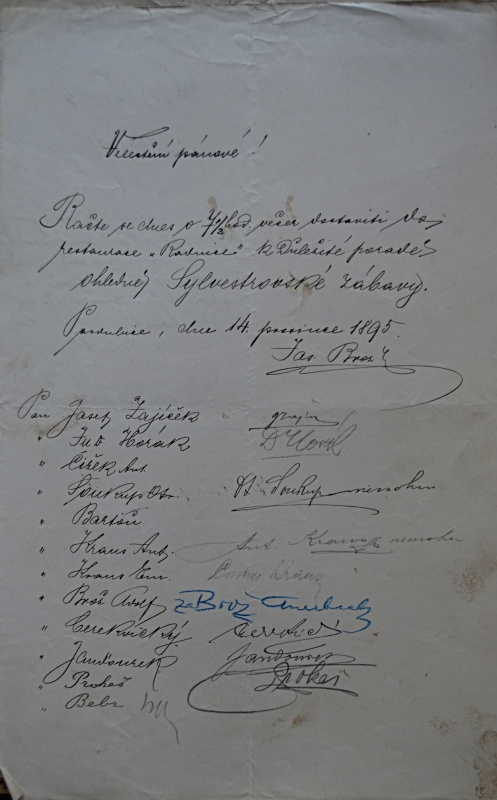 Velectění pánové!
Račte se dnes o 7 1/2 hod. večer dostaviti do
restaurace „Radnice" k důležité poradě
ohledně Sylvestrovské zábavy.
Pardubice, dne 14 prosince 1895.
Jos. Brož
Pan Josef Zajíček
" JUDr Horák Dr Horák
" Čížek Ant.
" Soukup Ot. Ot. Soukup nemohu
" Bartoň
" Kraus Ant. Ant. Kraus nemohu
" Kraus Em. Kraus
" Brož Adolf za Brož
" Cerekvický
" Jandourek Jandourek
" Prokeš Prokeš
" Bebr